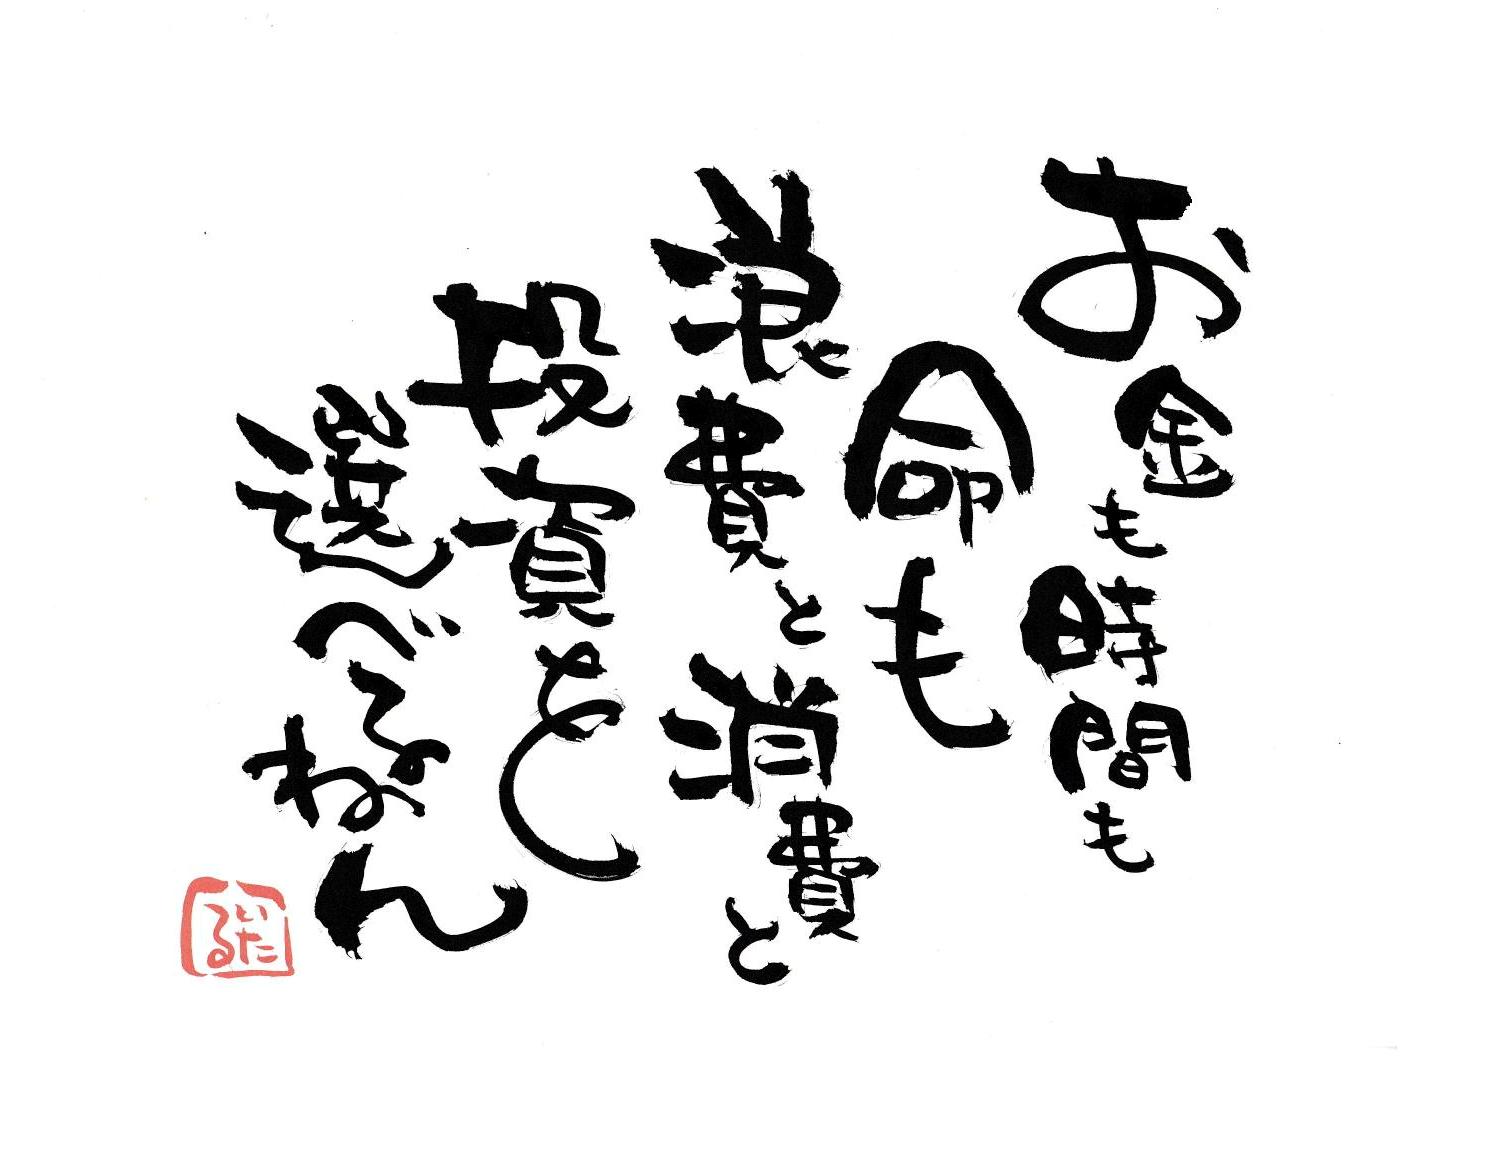 お金も時間も
命も
浪費と消費と
投資をと
選べるねん
いたる